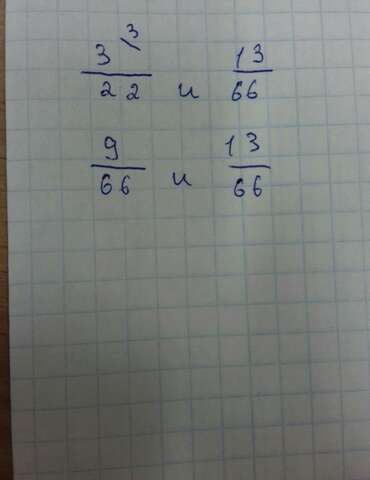 3 3
22 и 13
66
9
66 и 13
66